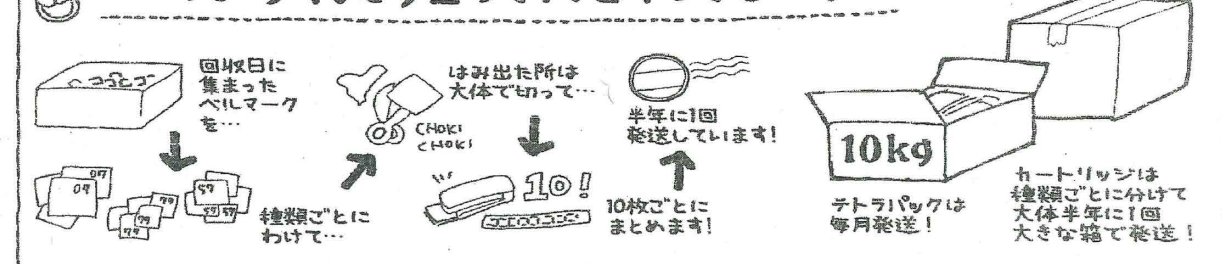 回収日に
集まった
ベルマーク
を…
07
07
79
79
79
57
57
57
種類ごとに
わけて…
CHOKI
CHOKI
はみ出た所は
大体で切って…
10!
10枚ごとに
まとめます!
半年に1回
発送しています!
10kg
テトラパックは
毎月発送!
カートリッジは
種類ごとに分けて
大体半年に1回
大きな箱で発送!